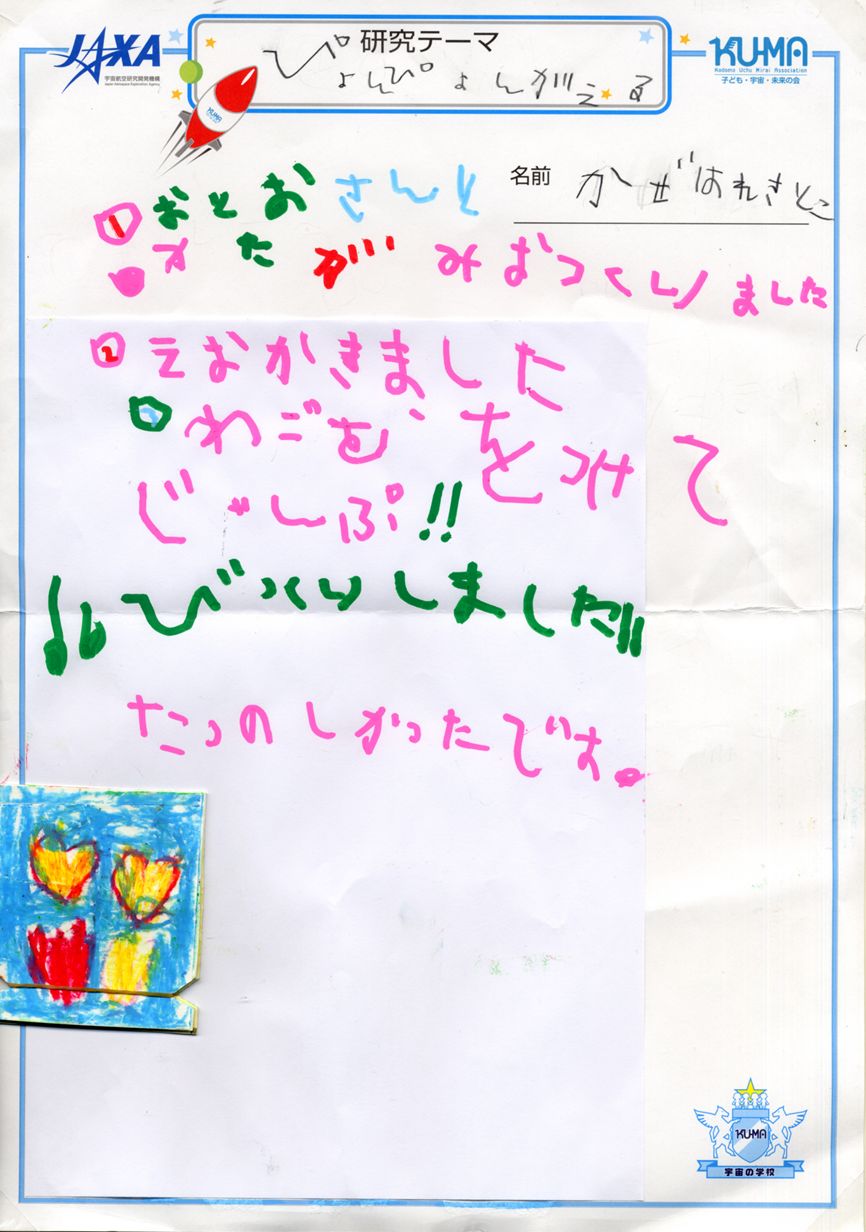 JAXA
宇宙航空研究開発機構
Japan Aerospace Exploration Agency
研究テーマ
ぴょんぴょんがえる
KU-MA
Kodomo Uchu Mirai Association
子ども・宇宙・未来の会
KUMA
名前
1 おとおさんと
かたがみおつくりました
2 えおかきました
3 わごむをつけて
じゃんぷ!!
びっくりしました!!
たっのしかったです。
KU-MA
宇宙の学校